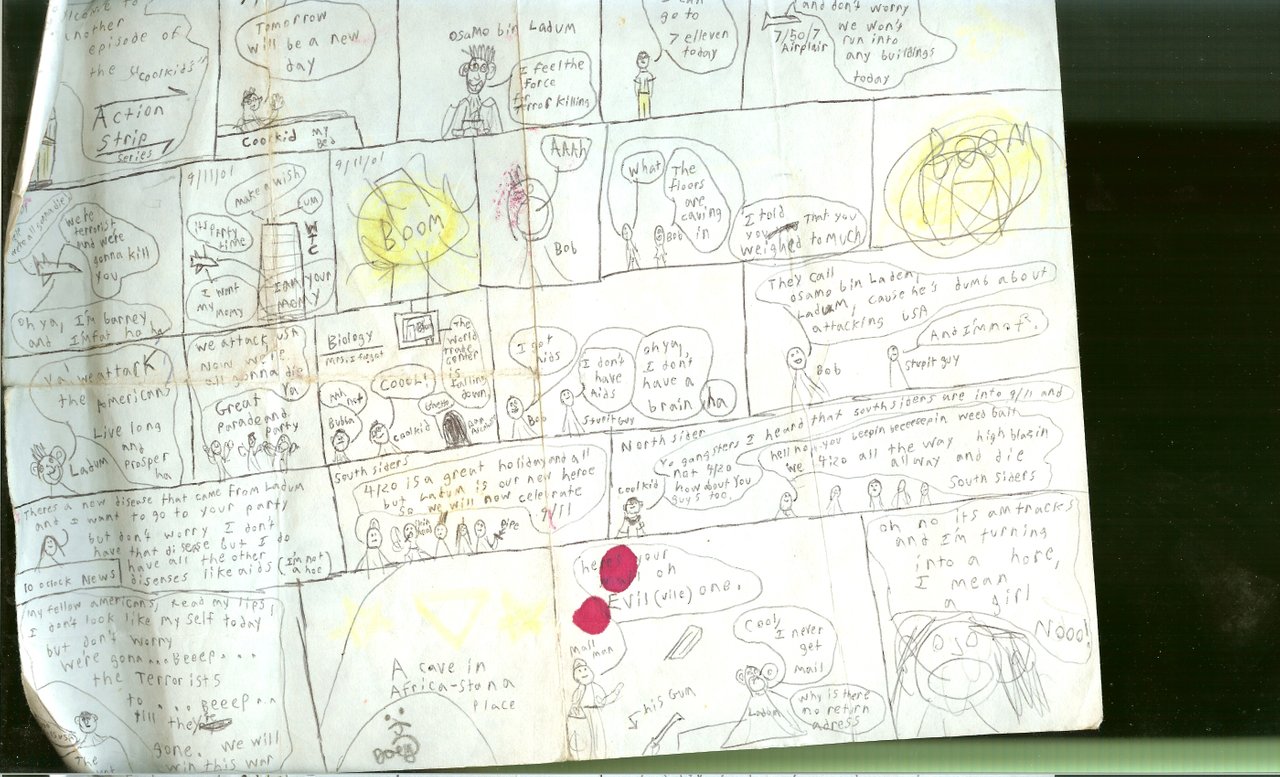 another
episode of
the "coolkids"
Action
Strip
series
Tomorrow
will be a new
day
Coolkid
my
Bed
osamo bin Ladum
I feel the
Force
for
terror killing
go to
7 elleven
today
7/50/7
Airplair
and don't worry
we won't
run into
any buildings
today
were all gonna die
we're
terrorist
and were
gonna kill
you
oh ya, I'm barney
and I'm fat ha ha
9/11/01
make a wish
um
It's Party
time
WTC
I want
my momy
I AM YOUR
MOMMY
9/11/01
BOOM
AAAh
Bob
What
The
floors
are
caving
in
Bob
I told
you that you
weighed to much
BOOM
Ya! we attack
the American
Live long
and
prosper
ha
Ladum
we attack USA
now we're
all gonna die
Ya
Great
parade and
party
Biology
The
World
trade
center
is
falling
down
COOOL!
Bubba
coolkid
I got
aids
Bob
I don't
have
Aids
Stupit Guy
oh ya,
I don't
have a
brain
ha
They call
osamo bin Laden
Ladum, cause he's dumb about
attacking USA
Bob
And I'm not.
Stupit guy
Theres a new disease that came from Ladum
and I want to go to your party
but don't worry I don't
have that disease but I do
have all the other
diseases like aids
(I'm not
a hoe
10 oclock News
South siders
4/20 is a great holiday and all
but Ladum is our new heroe
so we will now celebrate
9/11
Pipe
North sider
Yo gangsters I heard that southsiders are into 9/11 and
not 4/20
how about you
guys too.
coolkid
hell no you beepin beeeeepin weed bait
we 4/20 all the way high blasin
all way and die
South Siders
My fellow americans, Read my lips,
I don't look like my self today
but don't worry
were gonna...Beeep...
the Terrorists
to....Beeep..
till they
gone. we will
win this war
The
A cave in
Africa-stana
Place
your
oh
Evil (ville) one.
Mail
man
His Gun
Cool,
I never
get
mail
Ladum
why is there
no return
adress
oh no its amtracks
and I'm turning
into a hore,
I mean
a girl
Nooo!